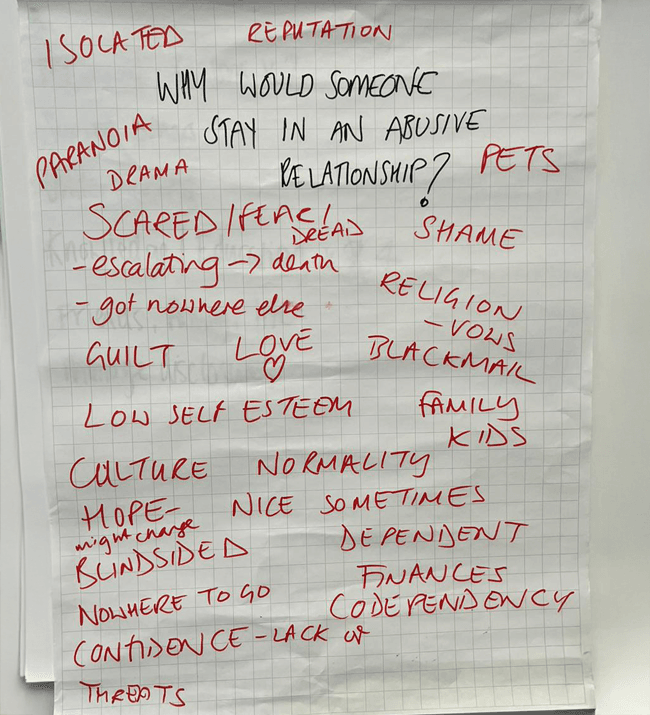 ISOLATED REPUTATION
WHY WOULD SOMEONE
STAY IN AN ABUSIVE
RELATIONSHIP?
PARANOIA
DRAMA
PETS
SCARED/FEAR/
DREAD
SHAME
-escalating -> death
- got nowhere else
RELIGION
- VOWS
GUILT LOVE ♡
BLACKMAIL
LOW SELF ESTEEM
FAMILY
KIDS
CULTURE NORMALITY
HOPE-
might change
NICE SOMETIMES
BLINDSIDED
DEPENDENT
FINANCES
NOWHERE TO GO
CODEPENDENCY
CONFIDENCE - LACK OF
THREATS